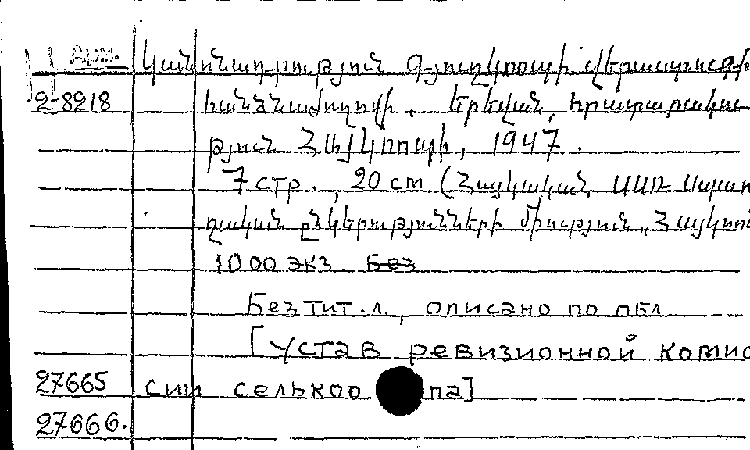 Арм. Կանոնադրություն Գյուղկոոպի վերաստուգիչ
2-8218 հանձնաժողովի. Երեվան, Հրատարակչա
թյուն Հայկոոպի, 1947.
7 стр., 20 cm (Հայկական ՍՍՌ Սպառո
ղական ընկերությունների Միություն „Հայկոո
1000 экз. Без
Без тит. л., описано по обл
[Устав ревизионной комис
27665 сии селькоо па]
27666.